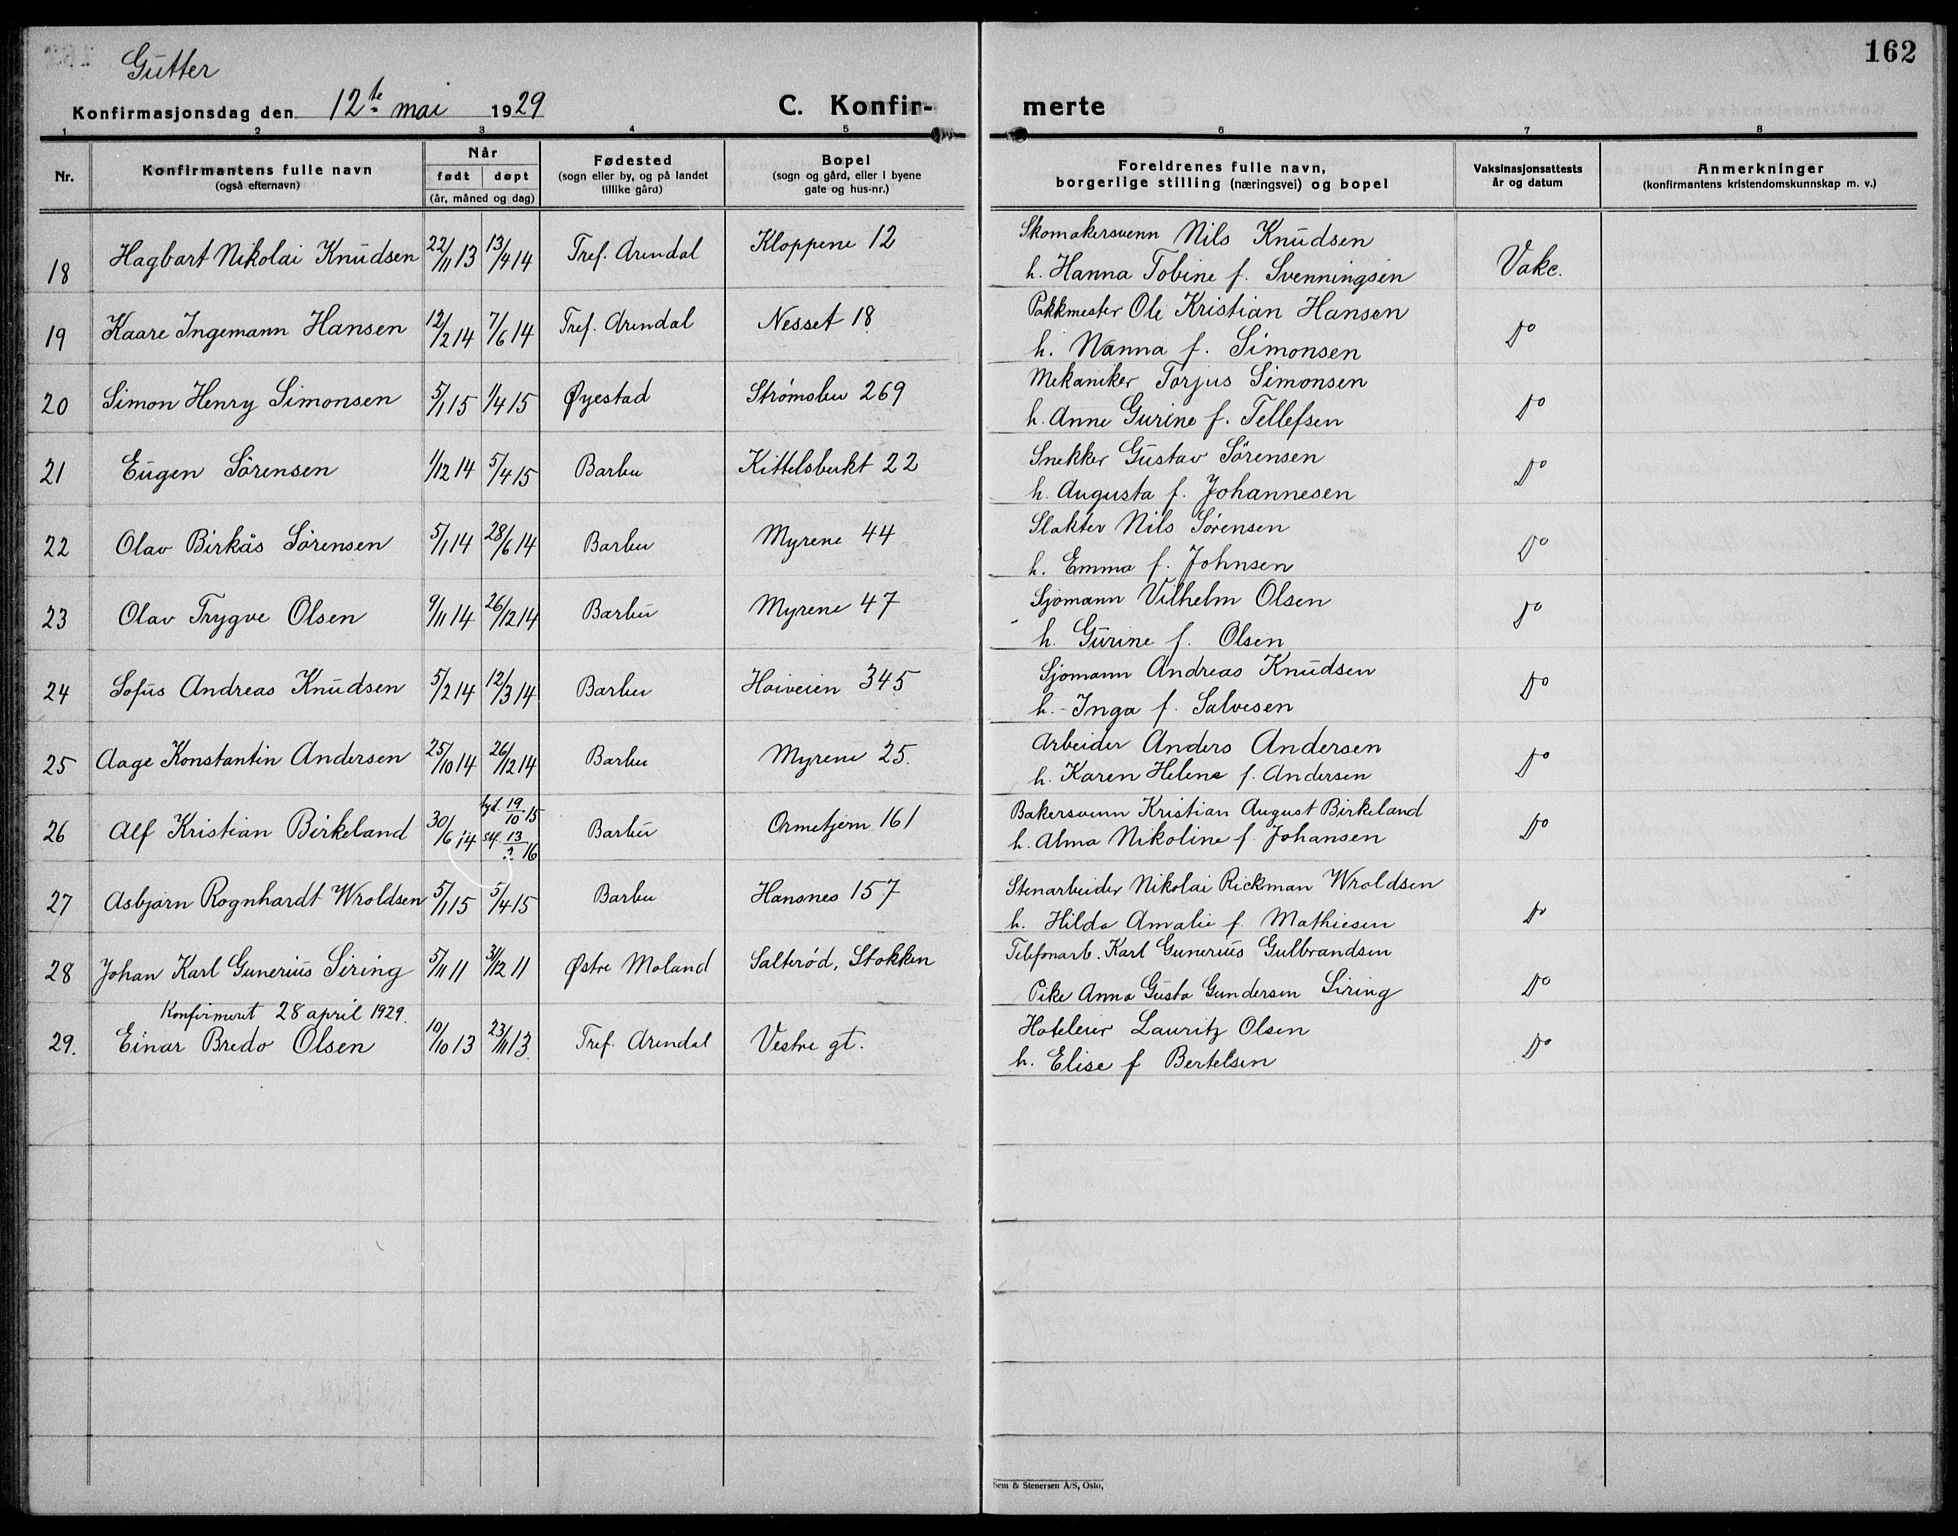 Gutter
162
Konfirmasjonsdag den 12te mai 1929
C. Konfir- merte
1 2 3 4 5 6 7 8
Nr. Konfirmantens fulle navn (også efternavn) Når født døpt (år, måned og dag) Fødested (sogn eller by, og på landet tillike gård) Bopel (sogn og gård, eller i byene gate og hus-nr.) Foreldrenes fulle navn, borgerlige stilling (næringsvei) og bopel Vaksinasjonsattests år og datum Anmerkninger (konfirmantens kristendomskunnskap m. v.)
18 Hagbart Nikolai Knudsen 22/11 13 13/4 14 Tref. Arendal Kloppene 12 Skomakersvenn Nils Knudsen Vakc.
h. Hanna Tobine f. Svenningsen
19 Kaare Ingemann Hansen 12/2 14 7/6 14 Tref. Arendal Nesset 18 Pakkmester Ole Kristian Hansen Do
h. Nanna f. Simonsen
20 Simon Henry Simonsen 5/1 15 1/4 15 Øyestad Strømsbu 269 Mekaniker Torjus Simonsen Do
h. Anne Gurine f. Tellefsen
21 Eugen Sörensen 1/12 14 5/4 15 Barbu Kittelsbukt 22 Snekker Gustav Sörensen Do
h. Augusta f. Johannesen
22 Olav Birkås Sörensen 5/1 14 28/6 14 Barbu Myrene 44 Slakter Nils Sørensen Do
h. Emma f. Johnsen
23 Olav Trygve Olsen 9/11 14 26/12 14 Barbu Myrene 47 Sjømann Vilhelm Olsen Do
h. Gurine f. Olsen
24 Sofus Andreas Knudsen 5/2 14 12/3 14 Barbu Hoiveien 345 Sjomann Andreas Knudsen Do
h. Inga f. Salvesen
25 Aage Konstantin Andersen 25/10 14 26/12 14 Barbu Myrene 25. Arbeider Anders Andersen Do
h. Karen Helene f. Andersen
26 Alf Kristian Birkeland 30/6 14 hjd. 19/10 15 stf. 13/? 16 Barbu Ormetjern 161 Bakersvenn Kristian August Birkeland Do
h. Alma Nikoline f. Johansen
27 Asbjørn Rognhardt Wroldsen 5/1 15 5/4 15 Barbu Hansnes 157 Stenarbeider Nikolai Rickman Wroldsen Do
h. Hilda Amalie f. Mathiesen
28 Johan Karl Gunerius Siring 5/11 11 31/12 11 Østre Moland Salterød, Stokken Telefonarb. Karl Gunerius Gulbrandsen Do
Pike Anna Gusta Gundersen Siring
Konfirmeret 28 april 1929.
29. Einar Bredo Olsen 10/10 13 23/11 13. Tref. Arendal Vestre gt. Hoteleier Lauritz Olsen Do
h. Elise f Bertelsen
Sem & Stenersen A/S, Oslo.